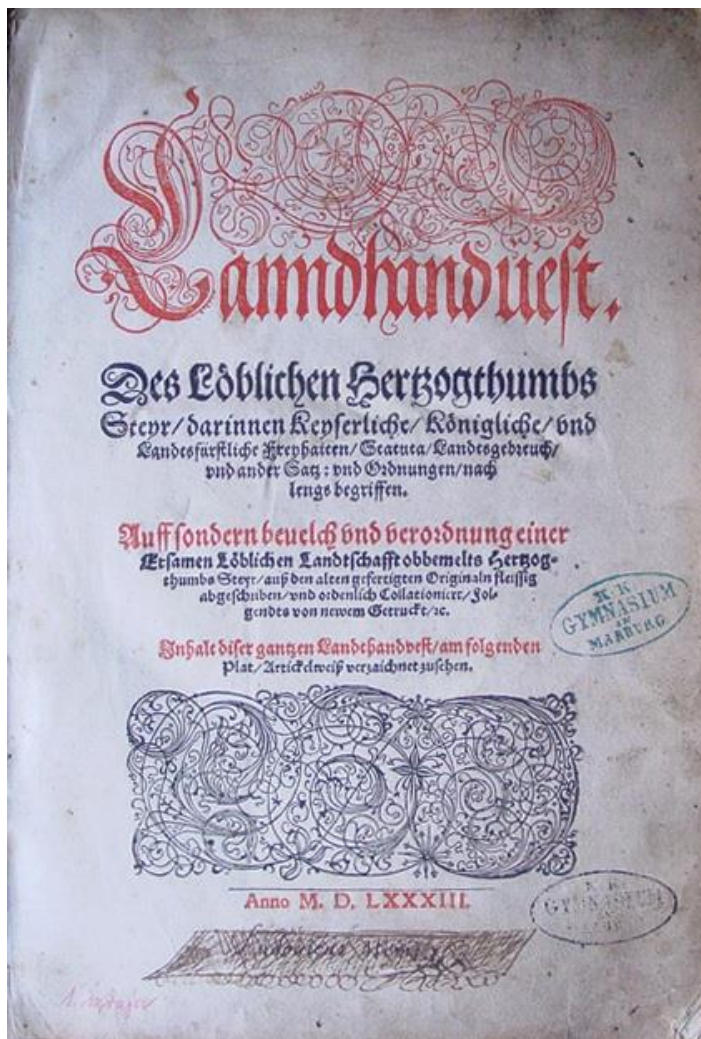 Lanndhanduest.
Des Löblichen Hertzogthumbs
Steyr/ darinnen Keyserliche/ Königliche/ vnd
Landesfürstliche Freyhaiten/ Statuta/ Landesgebreuch/
vnd ander Satz: vnd Ordnungen/ nach
lengs begriffen.
Auff sondern beuelch vnd verordnung einer
Ersamen Löblichen Landtschafft obbemelts Hertzog-
thumbs Steyr/ auß den alten gefertigten Originaln fleissig
abgeschriben/ vnd ordenlich Collationiert/ Fol-
gendts von newem Getruckt/ ꝛc.
Innhalt diser gantzen Landthandvest/ am folgenden
Plat/ Artickelweiß verzaichnet zusehen.
K K
GYMNASIUM
IN
MARBURG
Anno M. D. LXXXIII.
K. K.
GYMNASIUM